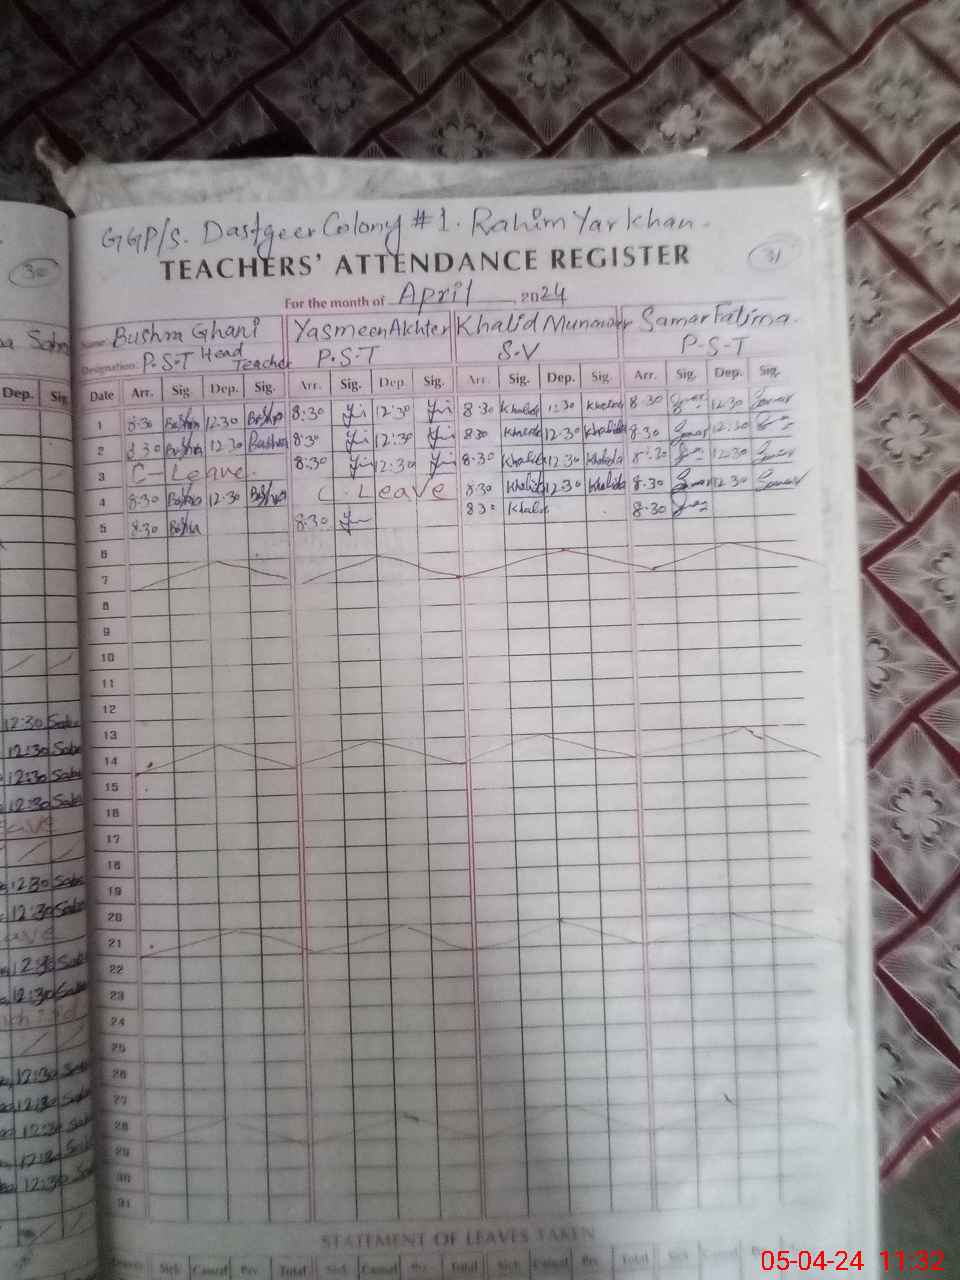 GGP/S. Dastgeer Colony #1. Rahim Yar Khan.
30
31
TEACHERS' ATTENDANCE REGISTER
For the month of April 2024
Name: Bushra Ghani Yasmeen Akhter Khalid Munawar Samar Fatima.
Designation: P.S.T Head Teacher P.S.T S.V P.S.T
Dep. Sig.
Date Arr. Sig. Dep. Sig. Arr. Sig. Dep. Sig. Arr. Sig. Dep. Sig. Arr. Sig. Dep. Sig.
1 8:30 Bushra 12:30 Bushra 8:30 12:30 8:30 Khalida 12:30 Khalida 8:30 12:30 Samar
2 8:30 Bushra 12:30 Bushra 8:30 12:30 8:30 Khalida 12:30 Khalida 8:30 Samar 12:30
3 C-Leave. 8:30 12:30 8:30 Khalida 12:30 Khalida 8:30 12:30 Samar
4 8:30 Bushra 12:30 Bushra C. Leave 8:30 Khalida 12:30 Khalida 8:30 Samar 12:30 Samar
5 8:30 Bushra 8:30 8:30 Khalid 8:30
6
7
8
9
10
11
12
12:30 Saba
13
12:30 Saba
14
12:30 Saba
15
12:30 Saba
16
eave
17
18
12:30 Saba
19
12:30 Saba
20
eave
21
12:30 Saba
22
12:30 Saba
23
24
25
12:30 Saba
26
12:30 Saba
27
12:30 Saba
28
12:30 Saba
29
12:30 Saba
30
31
STATEMENT OF LEAVES TAKEN
Sick Casual Prv. Total Sick Casual Prv. Total Sick Casual Prv. Total Sick Casual
05-04-24 11:32